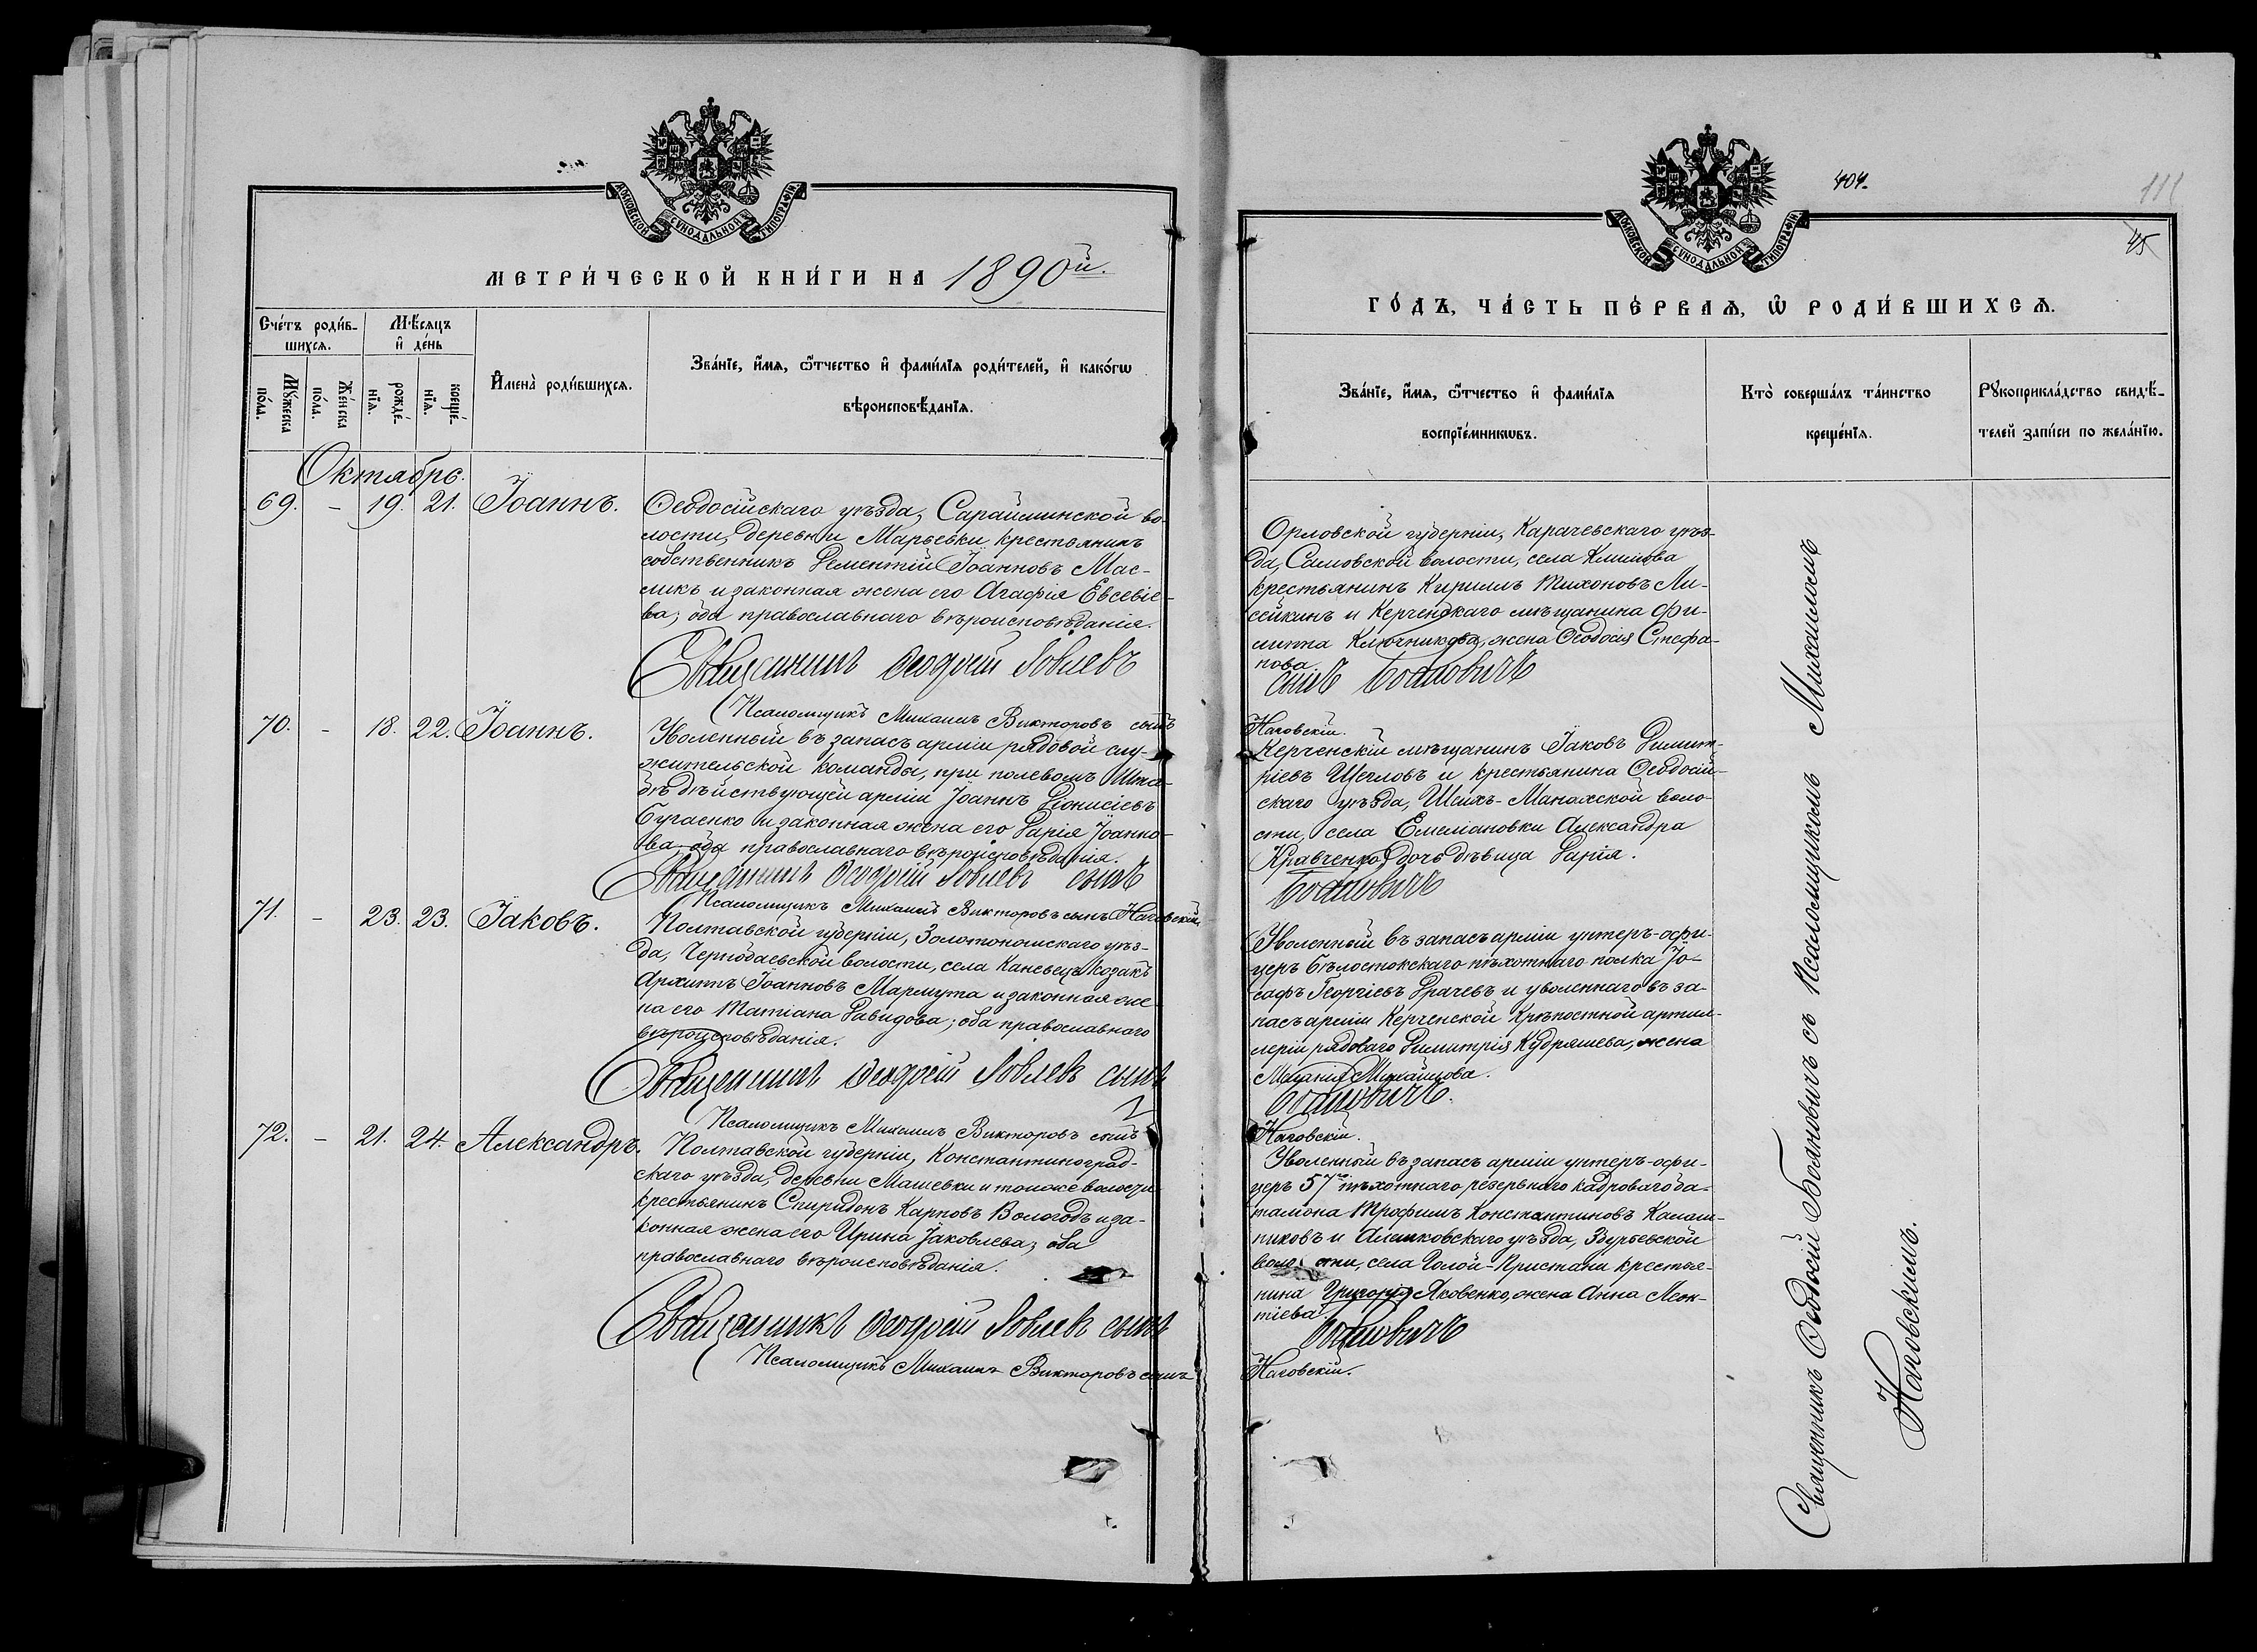 МОСКОВСКОЙ СѴНОДАЛЬНОЙ ТИПОГРАФІИ
МЕТРИ́ЧЕСКОЙ КНИ́ГИ НА 1890й.
Сче́тъ роди́в-
шихсѧ.
Мѣ́сѧцъ
и҆ де́нь
Мꙋ́жеска
по́ла.
Же́нска
по́ла.
рожде́-
нїѧ.
креще́-
нїѧ.
И҆мена̀ роди́вшихсѧ.
Зва́нїе, и҆́мѧ, ѻ҆́тчество и҆ фами́лїѧ роди́телей, и҆ како́гѡ
вѣроисповѣ́данїѧ.
Октябрь.
69. - 19. 21. Іоаннъ.
Ѳеодосійскаго уѣзда, Сарайминской во-
лости, деревни Марьевки крестьянинъ
собственникъ Дементій Іоанновъ Мас-
ликъ и законная жена его Агафія Евсевіе-
ва; оба православнаго вѣроисповѣданія.
Священникъ Ѳеодосій Іовлевъ
Псаломщикъ Михаилъ Викторовъ сынъ
70. - 18. 22. Іоаннъ.
Уволенный въ запасъ арміи рядовой слу-
жительской команды, при полевомъ Шта-
бѣ дѣйствующей арміи Іоаннъ Діонисіевъ
Бугаенко и законная жена его Дарія Іоанно-
ва; оба православнаго вѣроисповѣданія.
Священникъ Ѳеодосій Іовлевъ сынъ
Псаломщикъ Михаилъ Викторовъ сынъ Наговскій.
71. - 23. 23. Іаковъ.
Полтавской губерніи, Золотоношскаго уѣз-
да, Чернобаевской волости, села Каневецъ козакъ
Архипъ Іоанновъ Мармута и законная же-
на его Татіана Давидова; оба православнаго
вѣроисповѣданія.
Священникъ Ѳеодосій Іовлевъ сынъ
Псаломщикъ Михаилъ Викторовъ сынъ
72. - 21. 24. Александръ.
Полтавской губерніи, Константиноград-
скаго уѣзда, деревни Машевки и тоже волости
крестьянинъ Спиридонъ Карповъ Вологодъ и за-
конная жена его Ирина Іаковлева; оба
православнаго вѣроисповѣданія.
Священникъ Ѳеодосій Іовлевъ сынъ
Псаломщикъ Михаилъ Викторовъ сынъ
404.
111
45
МОСКОВСКОЙ СѴНОДАЛЬНОЙ ТИПОГРАФІИ
ГО́ДЪ, ЧА́СТЬ ПЕ́РВАѦ, Ѡ҆ РОДИ́ВШИХСѦ.
Зва́нїе, и҆́мѧ, ѻ҆́тчество и҆ фами́лїѧ
воспрїе́мникѡвъ.
Кто̀ соверша́лъ та́инство
креще́нїѧ.
Рꙋкоприкла́дство свидѣ́-
телей за́писи по жела́нїю.
Орловской губерніи, Карачевскаго уѣз-
да, Самовской волости, села Климова
крестьянинъ Кириллъ Тихоновъ Ми-
сейкинъ и Керченскаго мѣщанина Фи-
липпа Ключникова, жена Ѳеодосія Стефа-
нова.
сынъ Бояновичъ
Наговскій.
Керченскій мѣщанинъ Іаковъ Димит-
ріевъ Щегловъ и крестьянина Ѳеодосій-
скаго уѣзда, Шейхъ-Манахской воло-
сти, села Емеліановки Александра
Кравченко, дочь дѣвица Дарія.
Бояновичъ
Уволенный въ запасъ арміи унтеръ-офи-
церъ Бѣлостокскаго пѣхотнаго полка Іо-
сафъ Георгіевъ Драчевъ и уволеннаго въ за-
пасъ арміи Керченской крѣпостной артил-
леріи рядоваго Димитрія Кудряшева, жена
Меланія Михайлова.
Бояновичъ.
Наговскій.
Уволенный въ запасъ арміи унтеръ-офи-
церъ 57го пѣхотнаго резервнаго кадроваго ба-
таліона Трофимъ Константиновъ Калаш-
никовъ и Алешковскаго уѣзда, Збурьевской
волости, села Голой-Пристани крестья-
нина Григорія Яковенко, жена Анна Леон-
тіева.
Бояновичъ
Наговскій.
Священникъ Ѳеодосій Бояновичъ съ Псаломщикомъ Михаиломъ
Наговскимъ.